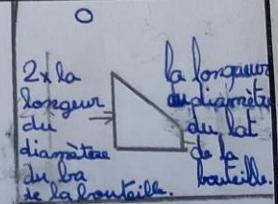 2x la
longeur
du
diamètre
du ba
de la bouteille.
la longueur
du diamètre
du lat
de la
bouteille.